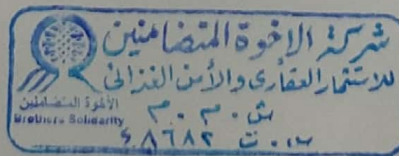 شركة الاخوة المتضامنين
للاستثمار العقارى والأمن الغذائى
ش.م.م
س.ت ٤٨٦٨٢
الأخوة المتضامنين
Brothers Solidarity